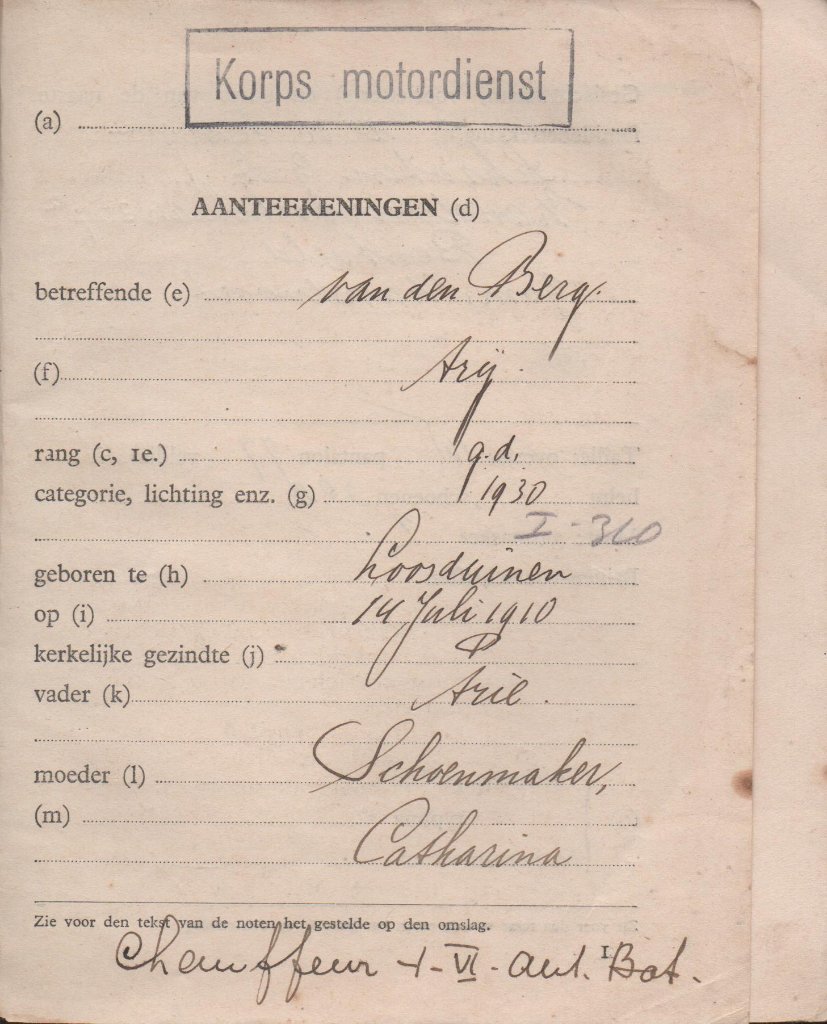 Korps motordienst
(a)
AANTEEKENINGEN (d)
betreffende (e) van den Berg.
(f) Arij.
rang (c, 1e.) g.d.
categorie, lichting enz. (g) 1930
I - 310
geboren te (h) Loosduinen
op (i) 14 Juli 1910
kerkelijke gezindte (j) P
vader (k) Arie.
moeder (l) Schoenmaker,
(m)
Catharina
Zie voor den tekst van de noten het gestelde op den omslag.
1.
Chauffeur 1-VI-aut. Bat.